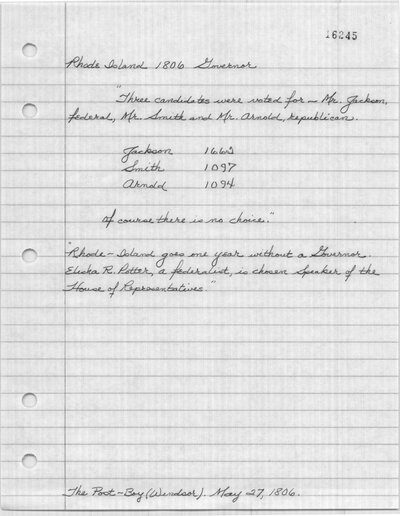 16245
Rhode Island 1806 Governor
"Three candidates were voted for — Mr. Jackson,
federal, Mr. Smith and Mr. Arnold, republican.
Jackson 1662
Smith 1097
Arnold 1094
Of course there is no choice."
"Rhode-Island goes one year without a Governor.
Elisha R. Potter, a federalist, is chosen Speaker of the
House of Representatives"
The Post-Boy (Windsor). May 27, 1806.